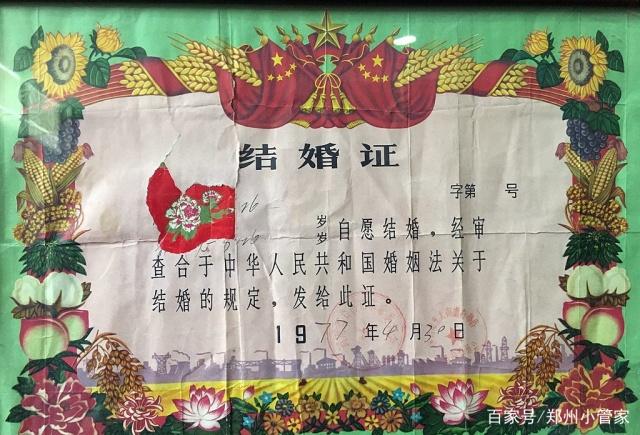 结婚证
字第 号
26
岁
26 岁 自愿结婚，经审
查合于中华人民共和国婚姻法关于
结婚的规定，发给此证。
1977年4月30日
百家号/郑州小管家